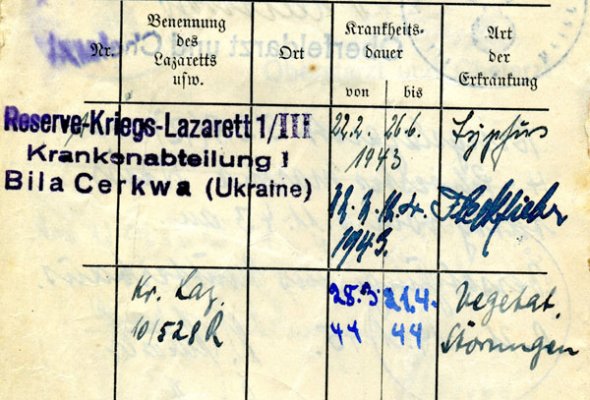 Nr.
Benennung
des
Lazaretts
usw.
Ort
Krankheits-
dauer
von
bis
Art
der
Erkrankung
Reserve-Kriegs-Lazarett 1/III
Krankenabteilung I
Bila Cerkwa (Ukraine)
22.2. 26.6. Typhus
1943
12.2. Fleckfieber
1943.
Kr. Laz. 28.3 21.4. Vegetat.
10/528 R 44 44 Störungen